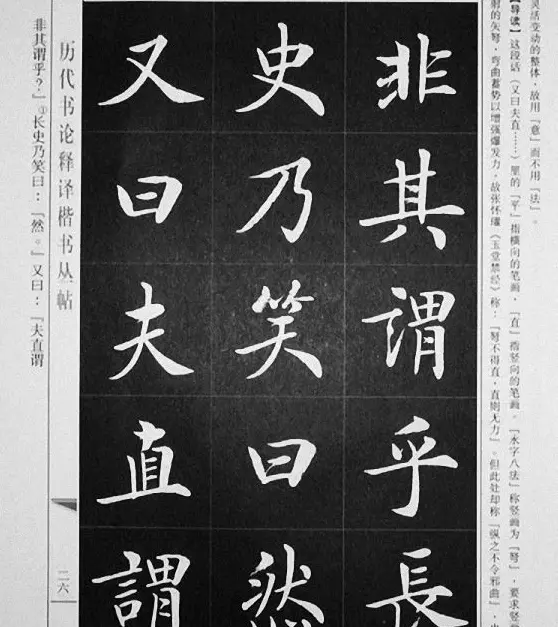 灵活变动的整体，故用「意」而不用「法」。
【导读】这段话（又曰夫直……）里的「平」指横向的笔画，「直」指竖向的笔画。「永字八法」称竖画为「弩」，要求竖
射的矢弩，弯曲蓄势以增强爆发力，故张怀瓘《玉堂禁经》称：「弩不得直，直则无力」。但此处却称「纵之不令邪曲」，
非其謂乎長
史乃笑曰然
又曰夫直謂
历代书论释译楷书丛帖
二六
非其谓乎？」①长史乃笑曰：「然。」又曰：「夫直谓